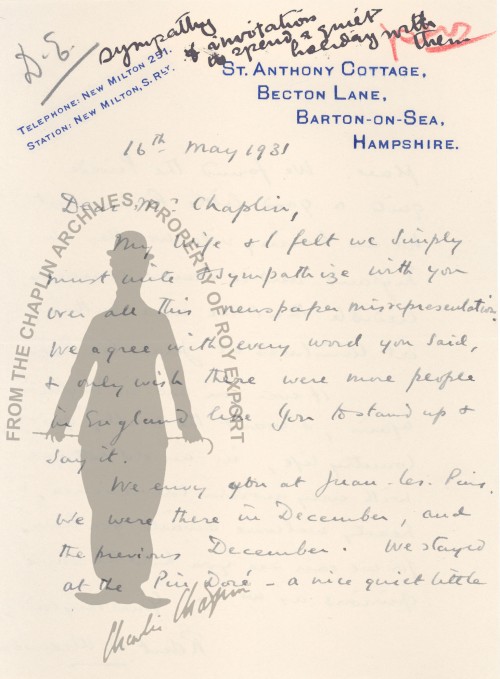 D. E.
sympathy
& invitation
to spend a quiet
holiday with
them
TELEPHONE: NEW MILTON 291.
STATION: NEW MILTON, S. RLY.
ST. ANTHONY COTTAGE,
BECTON LANE,
BARTON-ON-SEA,
HAMPSHIRE.
16th May 1931
Dear Mr Chaplin,
My wife & I felt we simply
must write & sympathize with you
over all this newspaper misrepresentation.
We agree with every word you said,
& only wish there were more people
in England like you to stand up &
say it.
We envy you at Juan-les-Pins.
We were there in December, and
the previous December. We stayed
at the Pin Doré – a nice quiet little
FROM THE CHAPLIN ARCHIVES, PROPERTY OF ROY EXPORT
Charlie Chaplin